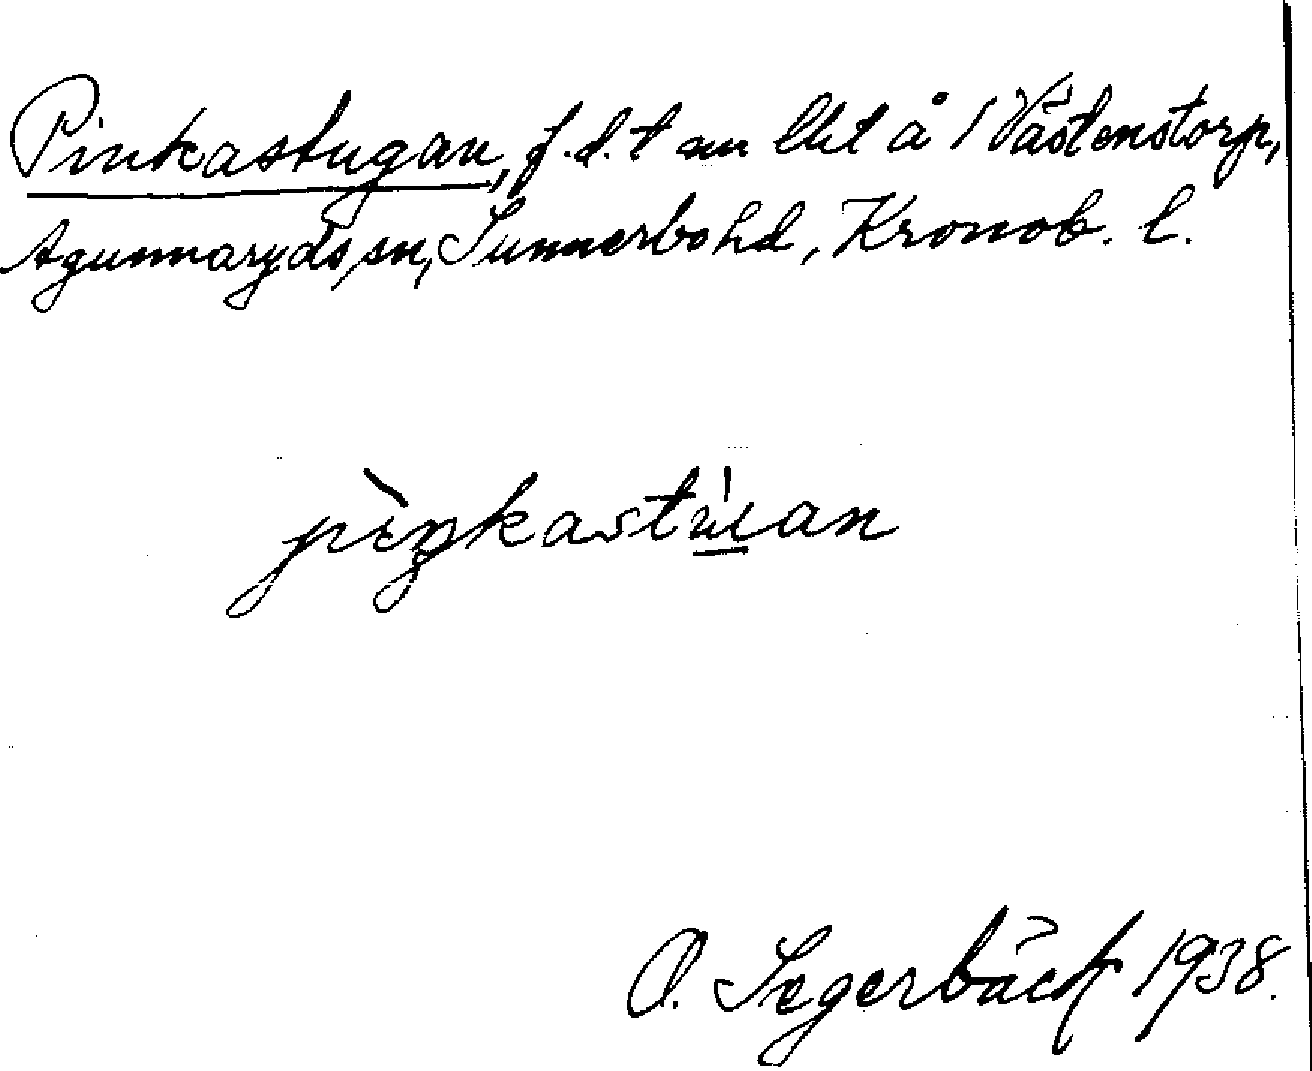 Pinkastugan, f.d. t an lht å 1 Västenstorp,
Agunnaryds sn, Sunnerbo hd, Kronob. l.
pìŋkastu̍an
O. Segerbäck 1938.